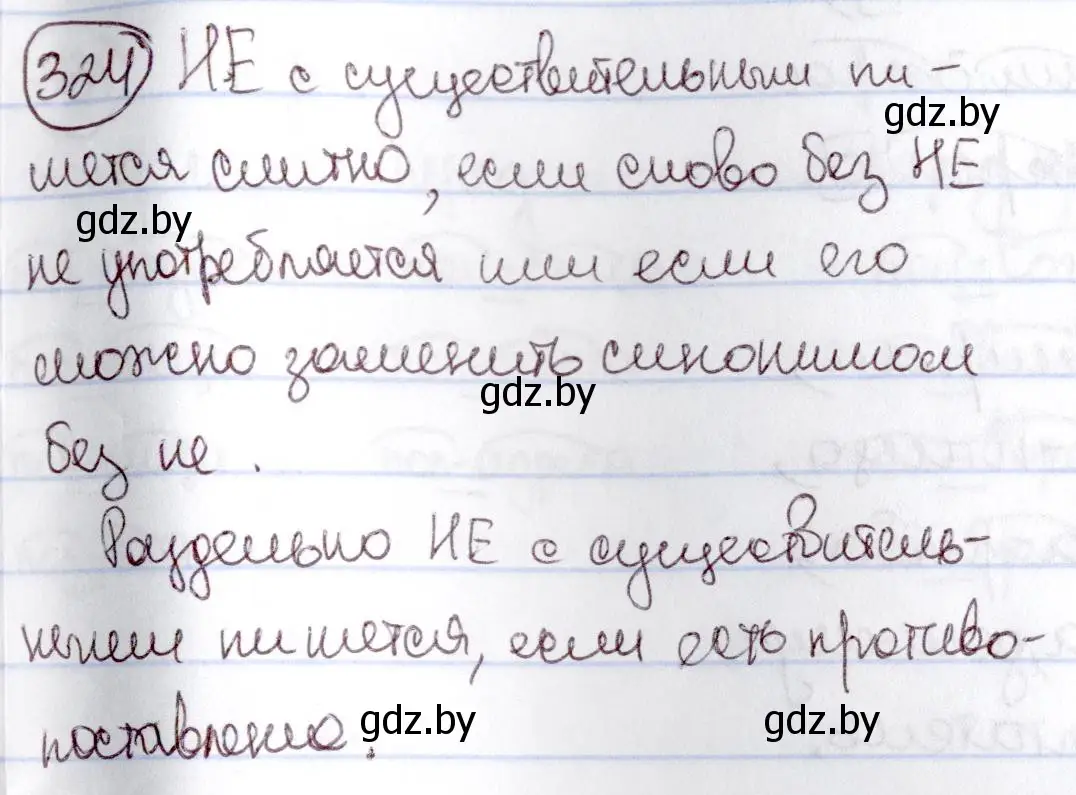 324 НЕ с существительным пи-
gdz.by
шется слитно, если слово без НЕ
gdz.by
не употребляется или если его
можно заменить синонимом
gdz.by
без не.
Раздельно НЕ с существитель-
ным пишется, если есть противо-
поставление.
gdz.by gdz.by